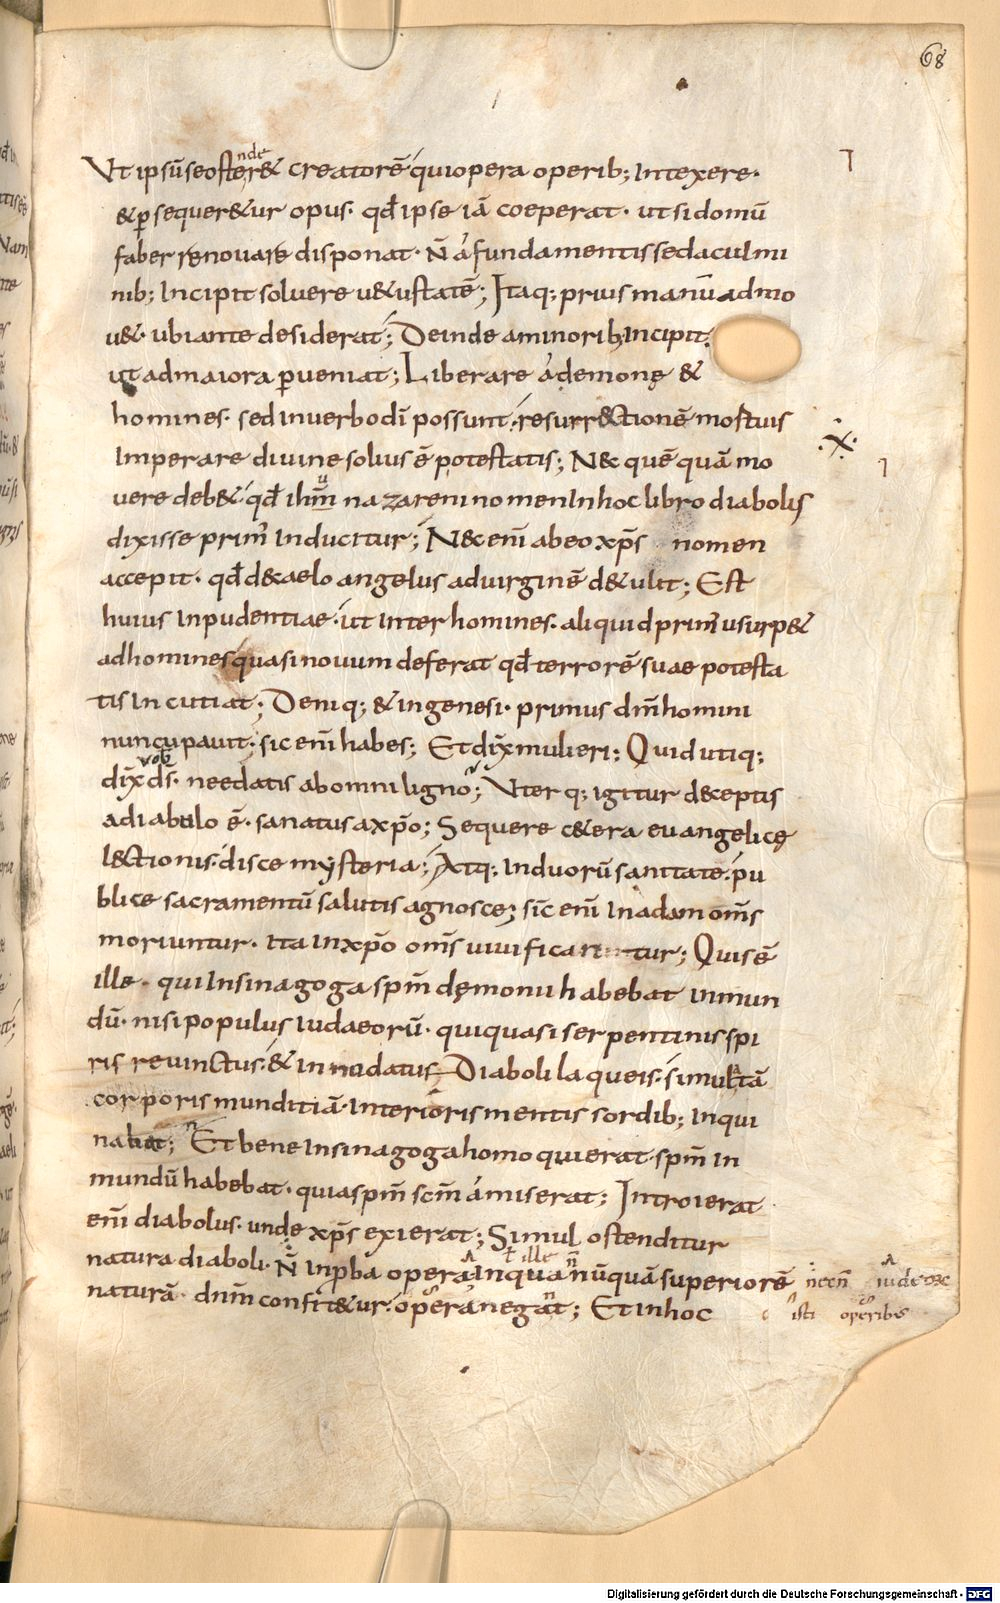 68
Vt ipsū se ostenderet& creatorē qui opera operib; Intexere·
& p̄sequer&ur opus· qđ ipse iā coeperat· ut si domū
faber renouare disponat· N̄ a fundamentis sed a culmi
nib; Incipit soluere u&ustatē; Itaq; prius manū admo
u&· ubi ante desiderat; Deinde a minorib; Incipit
ut ad maiora p̄ueniat; Liberare a demonę &
homines· sed in uerbo dī possunt· resurr&ctionē mortuis
Imperare diuine solius ē potestatis; N& quē quā mo
uere deb& qđ ihm̄ nazareni nomen In hoc libro diabolus
dixisse prim̄ Inducitur; N& enī ab eo xp̄s nomen
accepit· qđ d& caelo angelus ad uirginē d&ulit; Est
huius Inpudentiae· ut Inter homines· aliquid prim̄ usurp&
ad homines quasi nouum deferat qđ terrorē suae potesta
tis Incutiat; Deniq; & in genesi· primus dm̄ homini
nuncupauit; sic enī habes; Et dix̄ mulieri; Quid utiq;
dix̄ d̄s· ne edatis ab omni ligno; Vterq; igitur d&ceptis
a diabulo ē· sanatus a xp̄o; Sequere c&era euangelicę
l&ctionis· disce mysteria; Atq; In duorū sanitate· pu
blice sacramentū salutis agnosce; sic̄ enī In adam om̄s
moriuntur· Ita In xp̄o om̄s uiuificantur; Quis ē
ille· qui In sinagoga spm̄ dęmonii habebat Inmun
dū· nisi populus Iudaeorū· qui quasi serpentinis spi
ris reuinctus· & innodatus Diaboli laqueis· simulatā
corporis munditiā· Interioris mentis sordib; Inqui
nabat; Et bene In sinagoga homo qui erat· spm̄ In
mundū habebat· quia spm̄ scm̄ amiserat; Introierat
enī diabolus· unde xp̄s exierat; Simul ostenditur
natura diaboli· N̄ Inp̄ba opera In quā nūquā superiorē
naturā· dnm̄ confit&ur· opera negant; Et in hoc
isti operibus
Digitalisierung gefördert durch die Deutsche Forschungsgemeinschaft - DFG